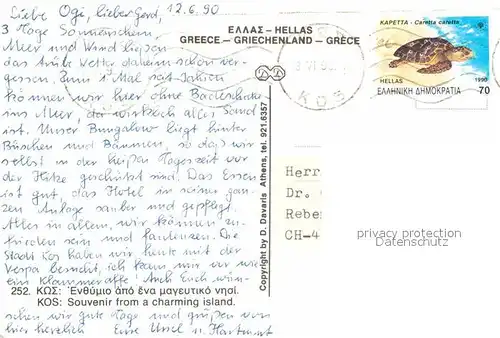 Liebe Ogi, lieber Gerd, 12.6.90
3 Tage Sonnenschein,
Meer und Wind ließen
das trübe Wetter daheim schon ver-
gessen. Zum 1. Mal seit Jahren
können wir hier ohne Badeschuhe
ins Meer, da wirklich alles Sand
ist. Unser Bungalow liegt hinter
Büschen und Bäumen, so daß wir
selbst in der heißen Tageszeit vor
der Hitze geschützt sind. Das Essen
ist gut, das Hotel in seiner gan-
zen Anlage sauber und gepflegt.
Alles in allem, wir können zu-
frieden sein und faulenzen. Die
Stadt Kos haben wir heute mit der
Vespa besucht, ich kam mir vor wie
ein Klammeraffe! Auch Euch wün-
252. ΚΩΣ: Ἐνθύμιο ἀπό ἕνα μαγευτικό νησί.
KOS: Souvenir from a charming island.
schen wir gute Tage und grüßen von
hier herzlich Eure Ursel u. Hartmut
ΕΛΛΑΣ - HELLAS
GREECE - GRIECHENLAND - GRÈCE
Copyright by D. Davaris Athens, tel. 921.6357
ΚΑΡΕΤΤΑ - Caretta caretta
HELLAS 1990
ΕΛΛΗΝΙΚΗ ΔΗΜΟΚΡΑΤΙΑ 70
ΚΟΣ
Herr
Dr.
Rebe
CH-4
privacy protection
Datenschutz